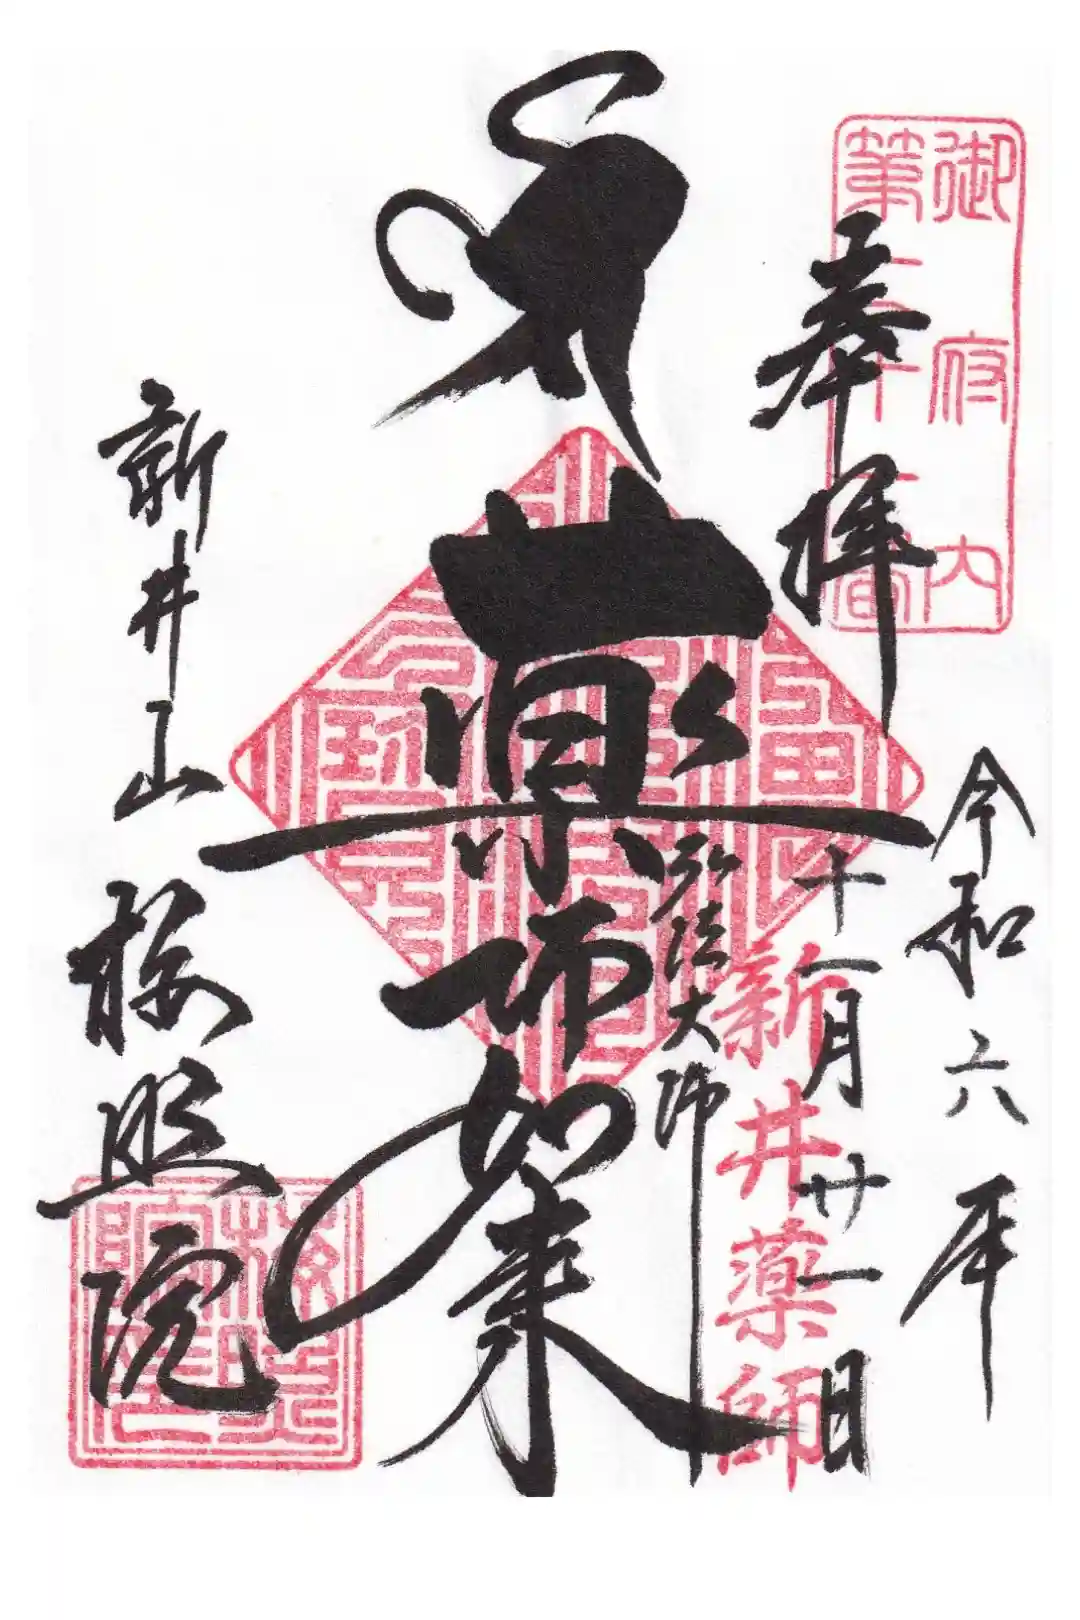 御府内
第七十一番
奉拝
令和六年
十一月廿一日
新井薬師
弘法大師
薬師如来
新井山
梅照院